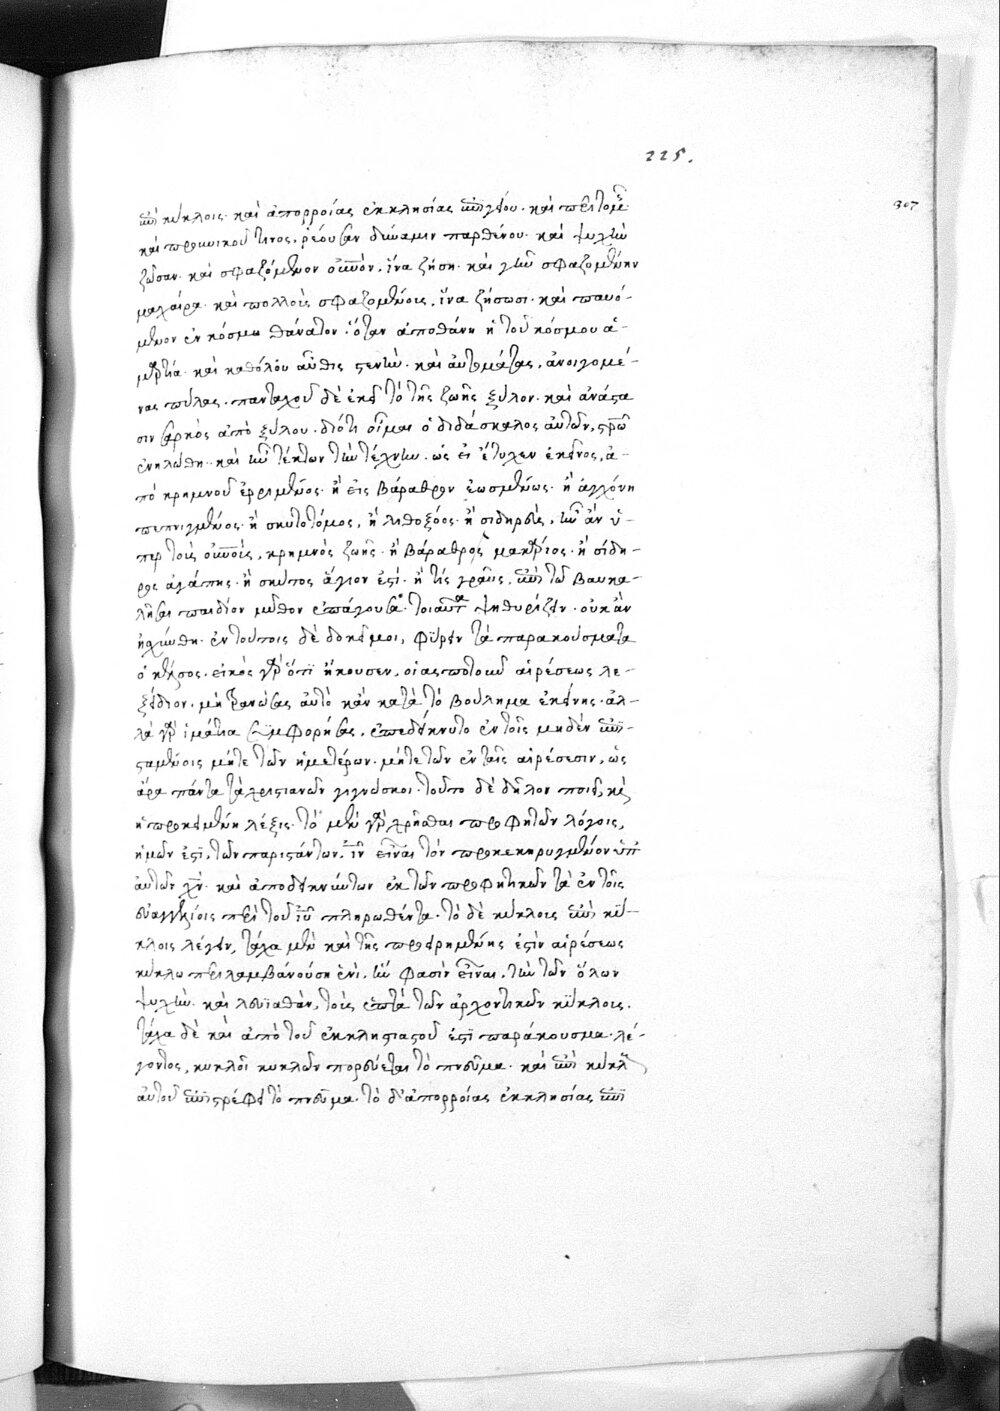 225.
307
ἐπὶ κύκλοις· καὶ ἀπορροίας ἐκκλησίας ἐπιγείου· καὶ περιτομῆς·
καὶ προυνικοῦ τινος, ῥέουσαν δύναμιν παρθένου· καὶ ψυχὴν
ζῶσαν· καὶ σφαζόμενον οὐνὸν, ἵνα ζήσῃ· καὶ γῆν σφαζομένην
μαχαίρᾳ· καὶ πολλοὺς σφαζομένους, ἵνα ζήσωσι· καὶ παυό-
μενον ἐν κόσμῳ θάνατον· ὅταν ἀποθάνῃ ἡ τοῦ κόσμου ἁ-
μαρτία· καὶ κάθοδον αὖθις στενὴν· καὶ αὐτομάτας, ἀνοιγομέ-
νας πύλας· πανταχοῦ δὲ ἐκεῖ τὸ τῆς ζωῆς ξύλον· καὶ ἀνάστα
σιν σαρκὸς ἀπὸ ξύλου· διότι οἶμαι ὁ διδάσκαλος αὐτῶν, στρω
ἐνηλώθη· καὶ ἦν τέκτων τὴν τέχνην· ὡς εἰ ἔτυχεν ἐκεῖνος, ἀ-
πὸ κρημνοῦ ἐρριμένος· ἢ εἰς βάραθρον ἐωσμένως· ἢ ἀγχόνῃ
πεπνιγμένος· ἢ σκυτοτόμος, ἢ λιθοξόος· ἢ σιδηρεὺς, ἦν ἂν ὑ-
πὲρ τοὺς οὐνοὺς, κρημνὸς ζωῆς· ἢ βάραθρος μακάριος· ἢ σίδη-
ρος ἀγάπης· ἢ σκύτος ἅγιον ἐστὶ· ἢ τίς γραῦς, ἐπὶ τῷ βαυκα-
λῆσαι παιδίον μῦθον ἐπάγουσα· τοιαῦτα ψηθυρίζειν· οὐκ ἂν
ᾐχύνθη· ἐν τούτοις δὲ δοκεῖ μοι, φύρειν τὰ παρακούσματα
ὁ κέλσος· εἰκὸς γὰρ ὅτι ἤκουσεν, οἱασποτοῦν αἱρέσεως λε-
ξείδιον· μὴ τρανώσας αὐτὸ κἂν κατὰ τὸ βούλημα ἐκείνης· ἀλ-
λὰ γὰρ ἱμάτια συμφορήσας, ἐπεδείκνυτο ἐν τοῖς μηδὲν ἐπι-
σταμένοις μήτε τῶν ἡμετέρων· μήτε τῶν ἐν ταῖς αἱρέσεσιν, ὡς
ἄρα πάντα τὰ χριστιανῶν γιγνώσκοι· τοῦτο δὲ δῆλον ποιεῖ, καὶ
ἡ προκειμένη λέξις· τὸ μὲν γὰρ χρῆσθαι προφητῶν λόγοις,
ἡμῶν ἐστὶ, τῶν παριστάντων, ιν εἶναι τὸν προκεκηρυγμένον ὑπ
αὐτῶν χν· καὶ ἀποδεικνύντων ἐκ τῶν προφητικῶν τὰ ἐν τοῖς
εὐαγγελίοις περὶ τοῦ ιυ πληρωθέντα· τὸ δὲ κύκλοις ἐπὶ κύ-
κλοις λέγειν, τάχα μὲν καὶ τῆς προειρημένης ἐστὶν αἱρέσεως
κύκλῳ περιλαμβανούσῃ ἑνὶ, ἥν φασὶν εἶναι, τὴν τῶν ὅλων
ψυχὴν· καὶ λευϊαθὰν, τοὺς ἑπτὰ τῶν ἀρχοντικῶν κύκλοις.
τάχα δὲ καὶ ἀπὸ τοῦ ἐκκλησιαστοῦ ἐστὶ παράκουσμα· λέ-
γοντος, κυκλοῖ κυκλῶν πορεύεται τὸ πνεῦμα· καὶ ἐπὶ κύκλους
αὐτοῦ ἐπιστρέφει τὸ πνεῦμα· τὸ δ' ἀπορροίας ἐκκλησίας ἐπι